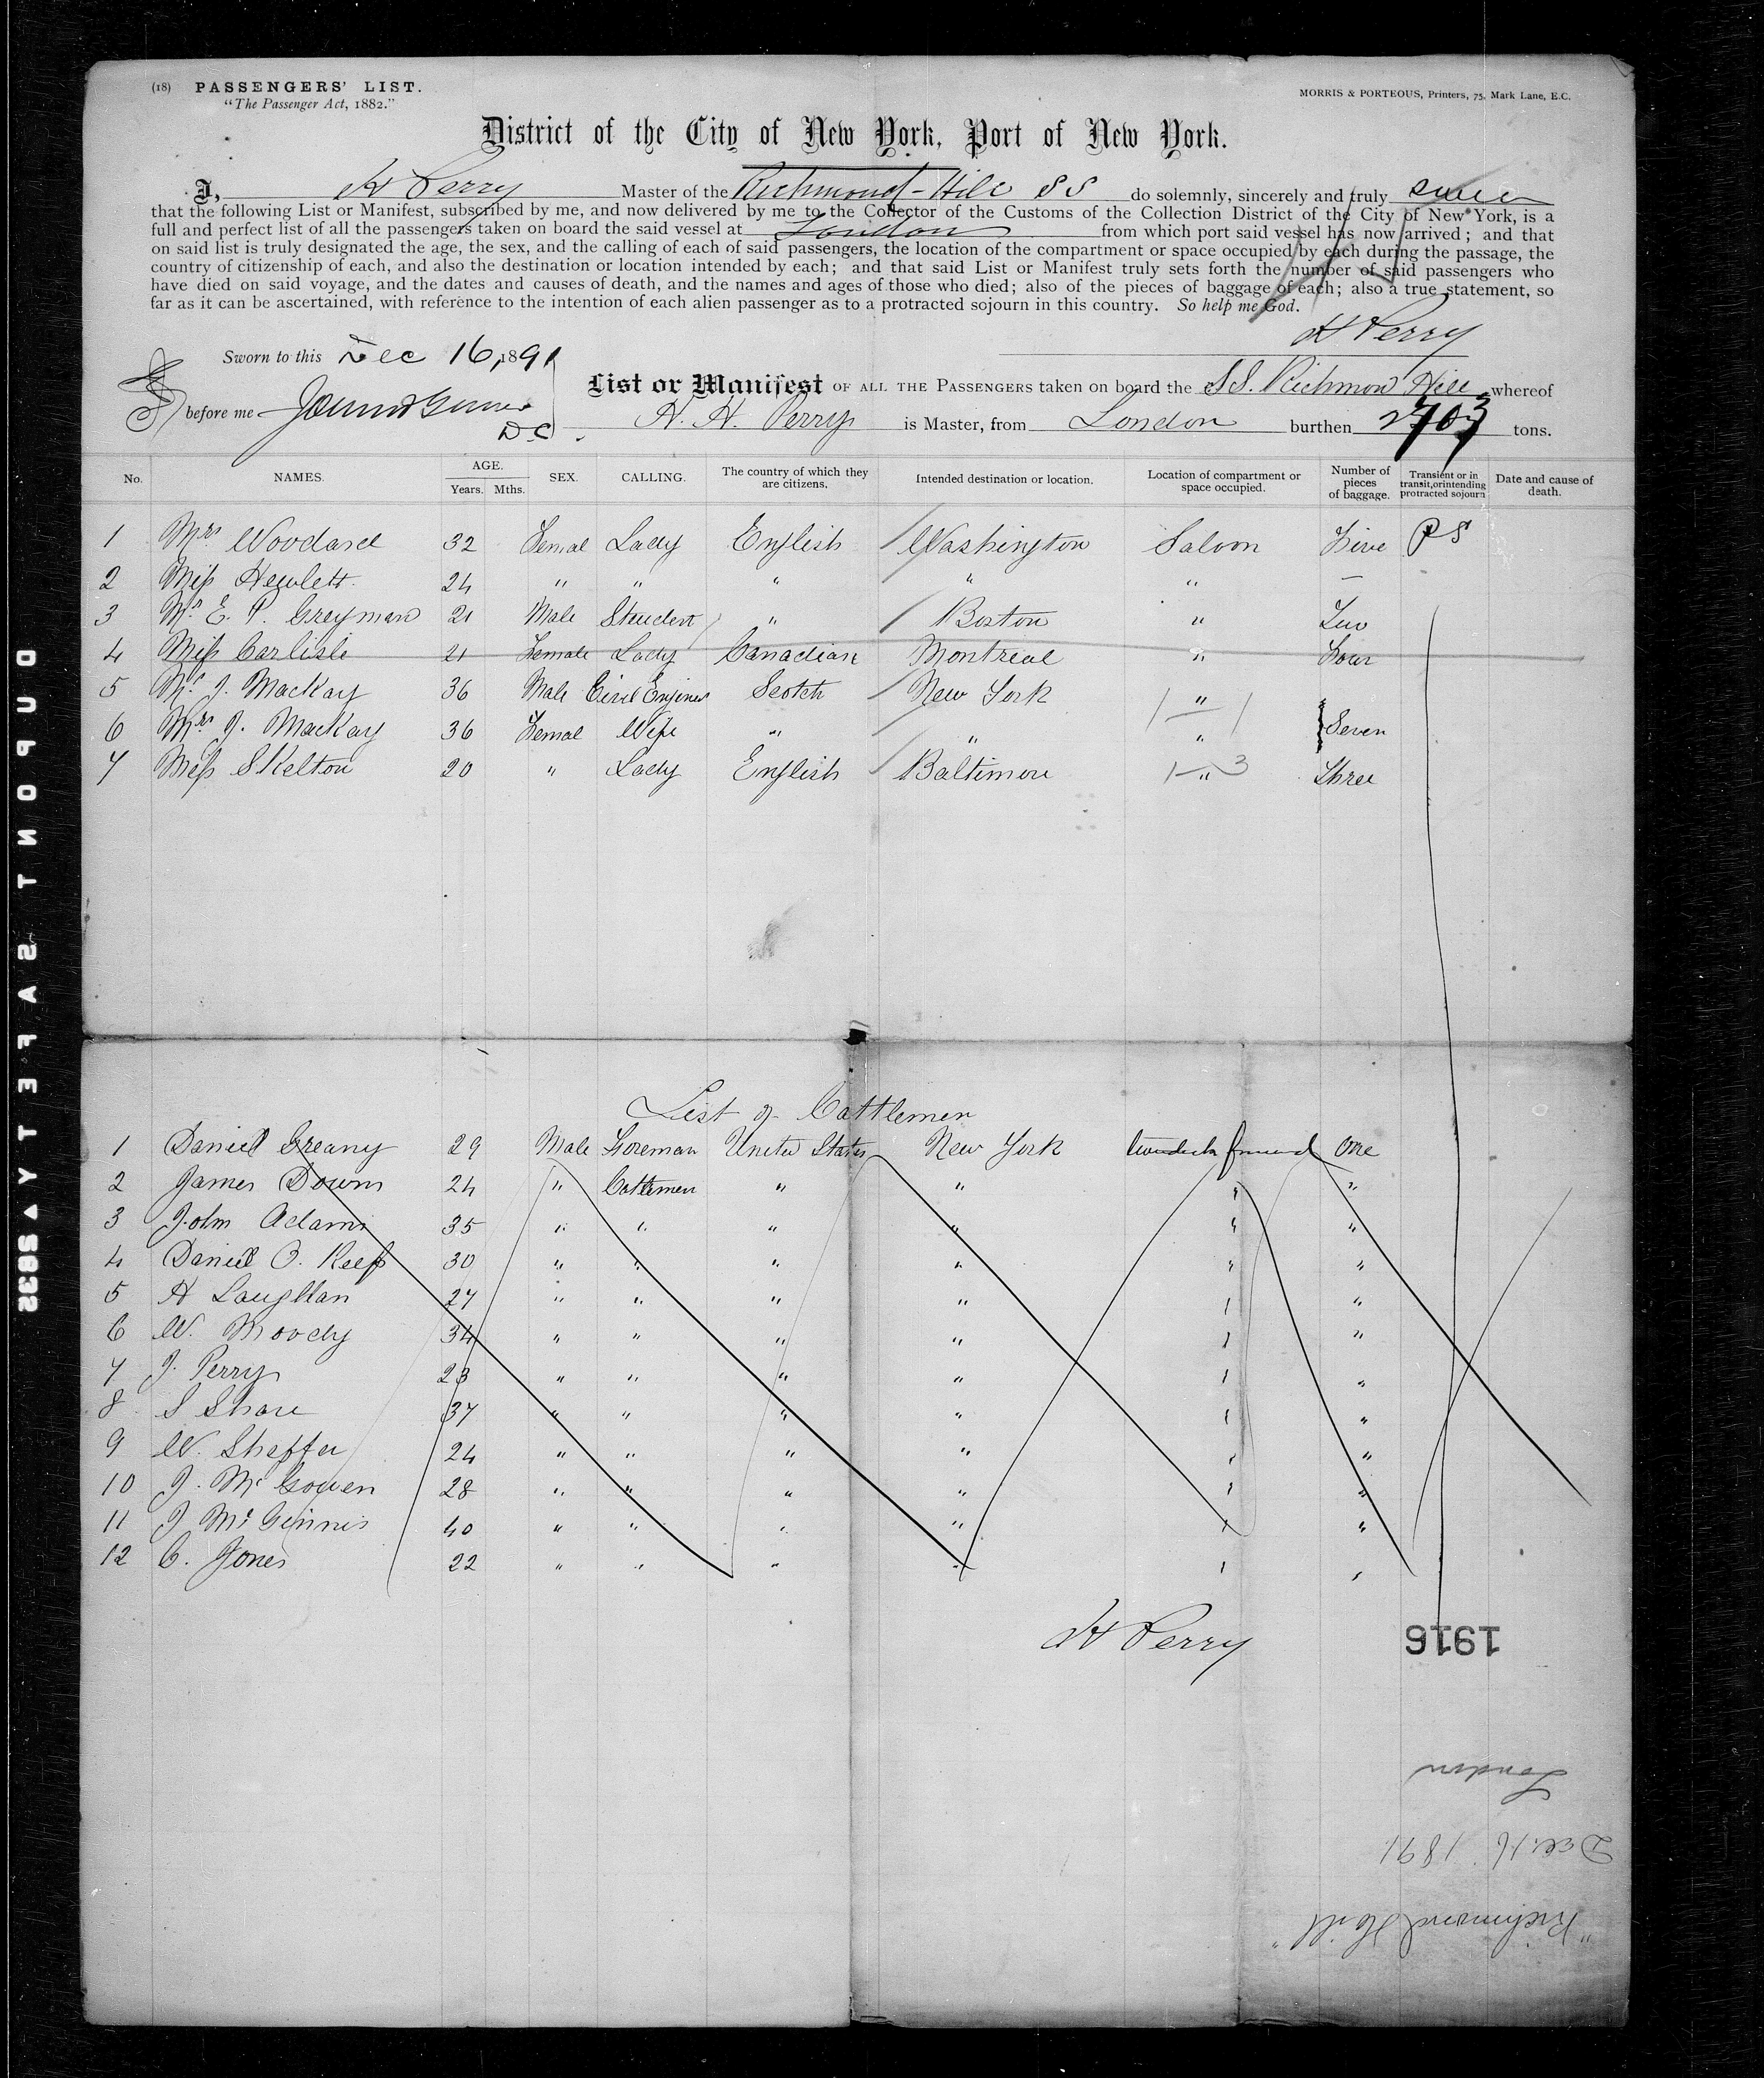 (18) PASSENGERS' LIST.
"The Passenger Act, 1882."
MORRIS & PORTEOUS, Printers, 75, Mark Lane, E.C.
District of the City of New York, Port of New York.
I, H Perry Master of the Richmond-Hill SS do solemnly, sincerely and truly swear
that the following List or Manifest, subscribed by me, and now delivered by me to the Collector of the Customs of the Collection District of the City of New York, is a
full and perfect list of all the passengers taken on board the said vessel at London from which port said vessel has now arrived; and that
on said list is truly designated the age, the sex, and the calling of each of said passengers, the location of the compartment or space occupied by each during the passage, the
country of citizenship of each, and also the destination or location intended by each; and that said List or Manifest truly sets forth the number of said passengers who
have died on said voyage, and the dates and causes of death, and the names and ages of those who died; also of the pieces of baggage of each; also a true statement, so
far as it can be ascertained, with reference to the intention of each alien passenger as to a protracted sojourn in this country. So help me God.
H Perry
Sworn to this Dec 16, 1891
before me
D.C.
List or Manifest OF ALL THE PASSENGERS taken on board the SS. Richmon Hill whereof
H. H. Perry is Master, from London burthen 2703 tons.
No. NAMES. AGE. Years. Mths. SEX. CALLING. The country of which they are citizens. Intended destination or location. Location of compartment or space occupied. Number of pieces of baggage. Transient or in transit, or intending protracted sojourn Date and cause of death.
1 Mrs Woodard 32 Femal Lady English Washington Saloon Five P S
2 Miss Hewlett 24 " " " " " —
3 Mr E. P. Greyman 21 Male Student " Boston " Two
4 Miss Carlisle 21 Female Lady Canadian Montreal " Four
5 Mr J. Mackay 36 Male Civil Engineer Scotch New York "
6 Mrs J. Mackay 36 Femal Wife " " " Seven
7 Miss Skelton 20 " Lady English Baltimore " 3 Three
List of Cattlemen
1 Daniel Greany 29 Male Foreman United States New York One
2 James Down 24 " Cattlemen " " " "
3 John Adams 35 " " " " " "
4 Daniel O. Keefe 30 " " " " " "
5 H Laughlan 27 " " " " " "
6 W. Moody 34 " " " " " "
7 J. Perry 23 " " " " " "
8 S Shore 37 " " " " " "
9 W. Sheffer 24 " " " " " "
10 J. Mc Gowen 28 " " " " " "
11 J Mc Ginnis 40 " " " " " "
12 C. Jones 22 " " " " " "
H Perry
1916
London
Dec. 16. 1891
"Richmond Hill"
DUPONT SAFETY 5B32